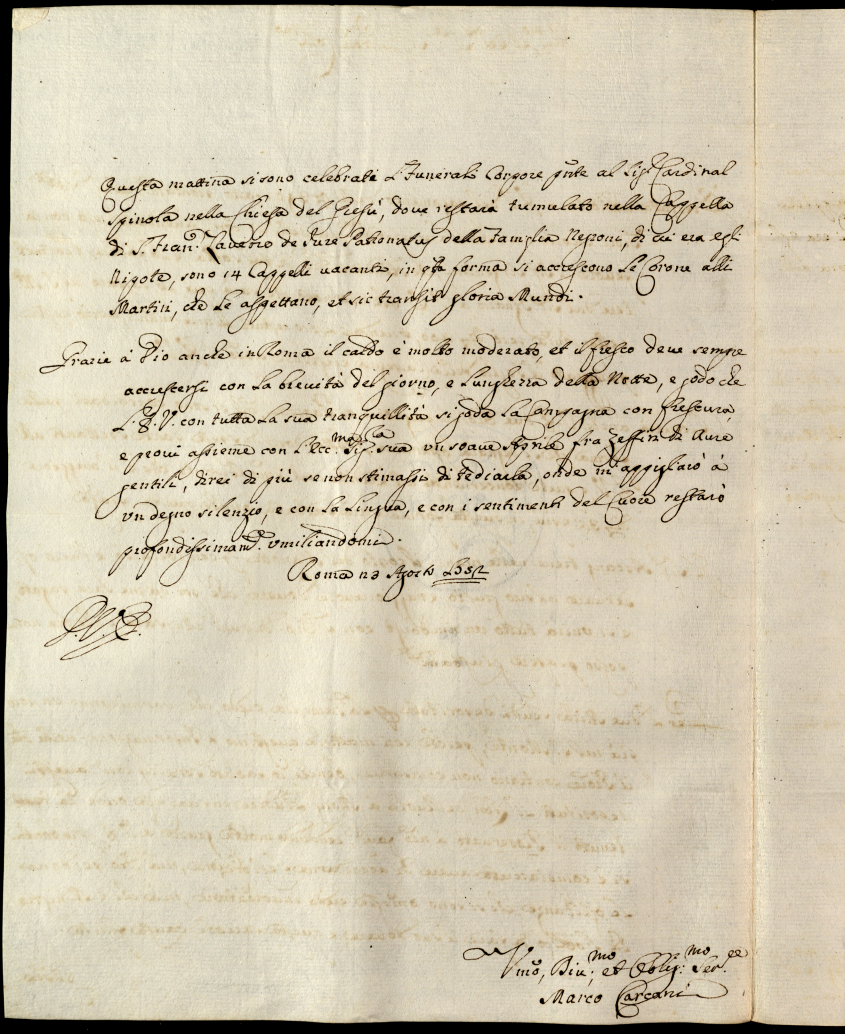 Questa mattina si sono celebrati L'Funerali Corpore pñte al Sig.r Cardinal
Spinola nella Chiesa del Giesù, dove restarà tumulato nella Cappella
di S. Fran.co Xaverio de Jure Patronatus della Famiglia Negroni, di cui era egli
Nipote, sono 14 Cappelli vacanti, in q.ta forma si accrescono Le Corone alli
Martiri, che Le aspettano, et sic transit gloria Mundi.
Grazie à Dio anche in Roma il caldo è molto moderato, et il fresco deve sempre
accrescersi con La brevità del giorno, e Lunghezza della Notte, e godo che
L'E. V. con tutta La sua tranquillità si goda La Campagna con frescura,
e provi assieme con L'Ecc.ma Sig.ra sua un soave Aprile fra Zeffiri di Aure
gentili, direi di più se non stimassi di tediarla, onde m'appigliarò à
un degno silenzio, e con La Lingua, e con i sentimenti del Cuore restarò
profondissimam.te umiliandomi.
Roma 23 Agosto
D. V. E.
Vmõ, Div.mo et Oblig.mo Ser.re
Marco Carcani